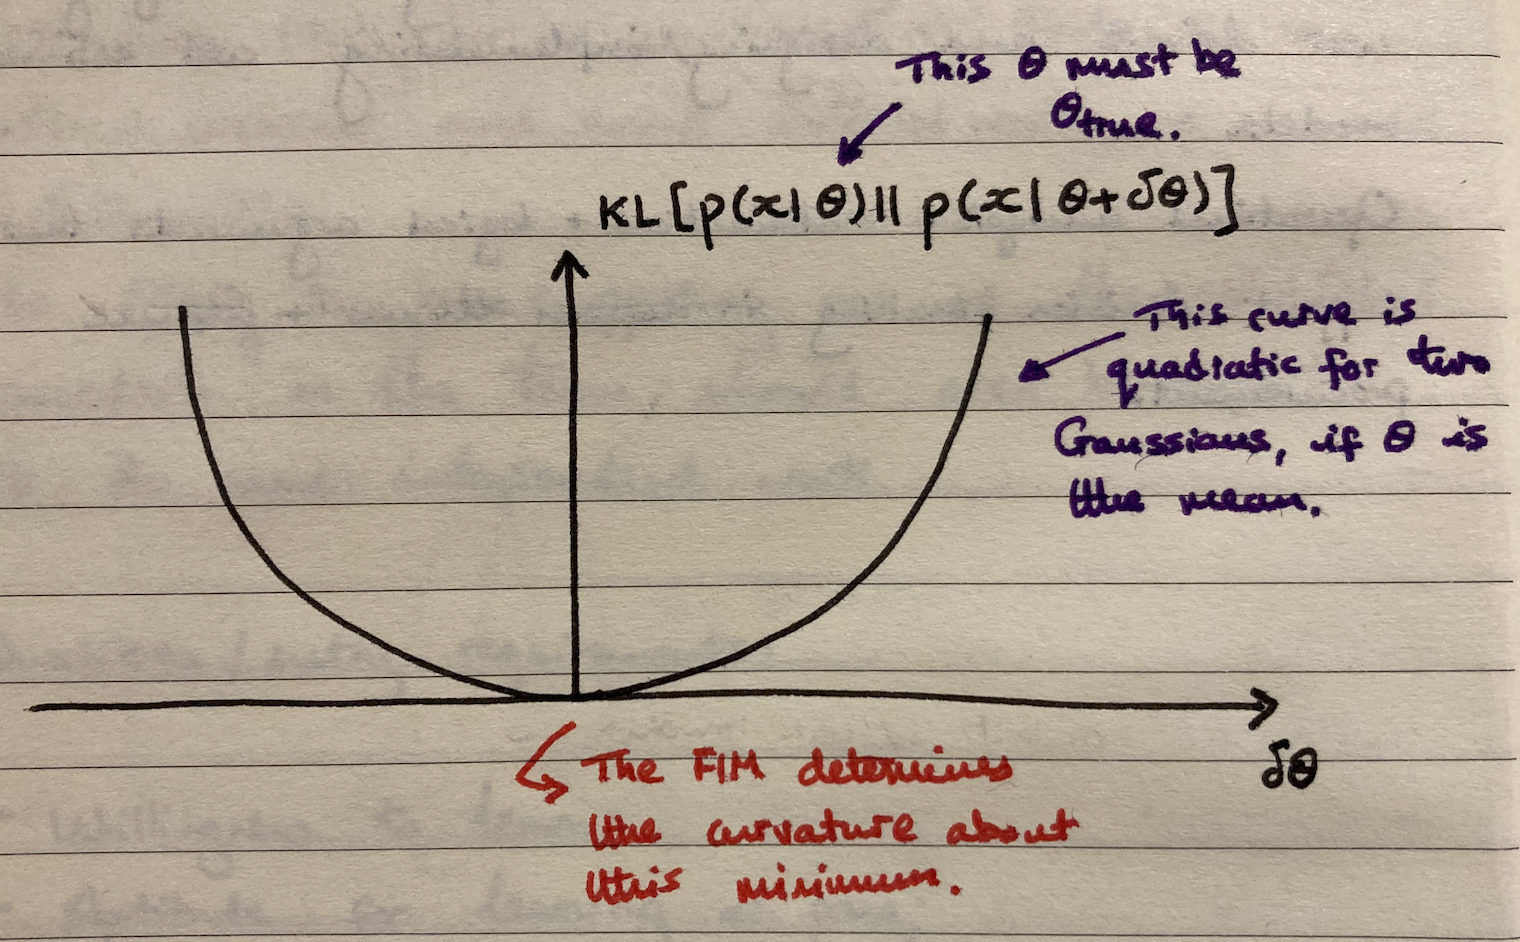 This θ must be
θtrue.
KL[p(x|θ)|| p(x|θ+δθ)]
This curve is
quadratic for two
Gaussians, if θ is
the mean.
δθ
The FIM determines
the curvature about
this minimum.